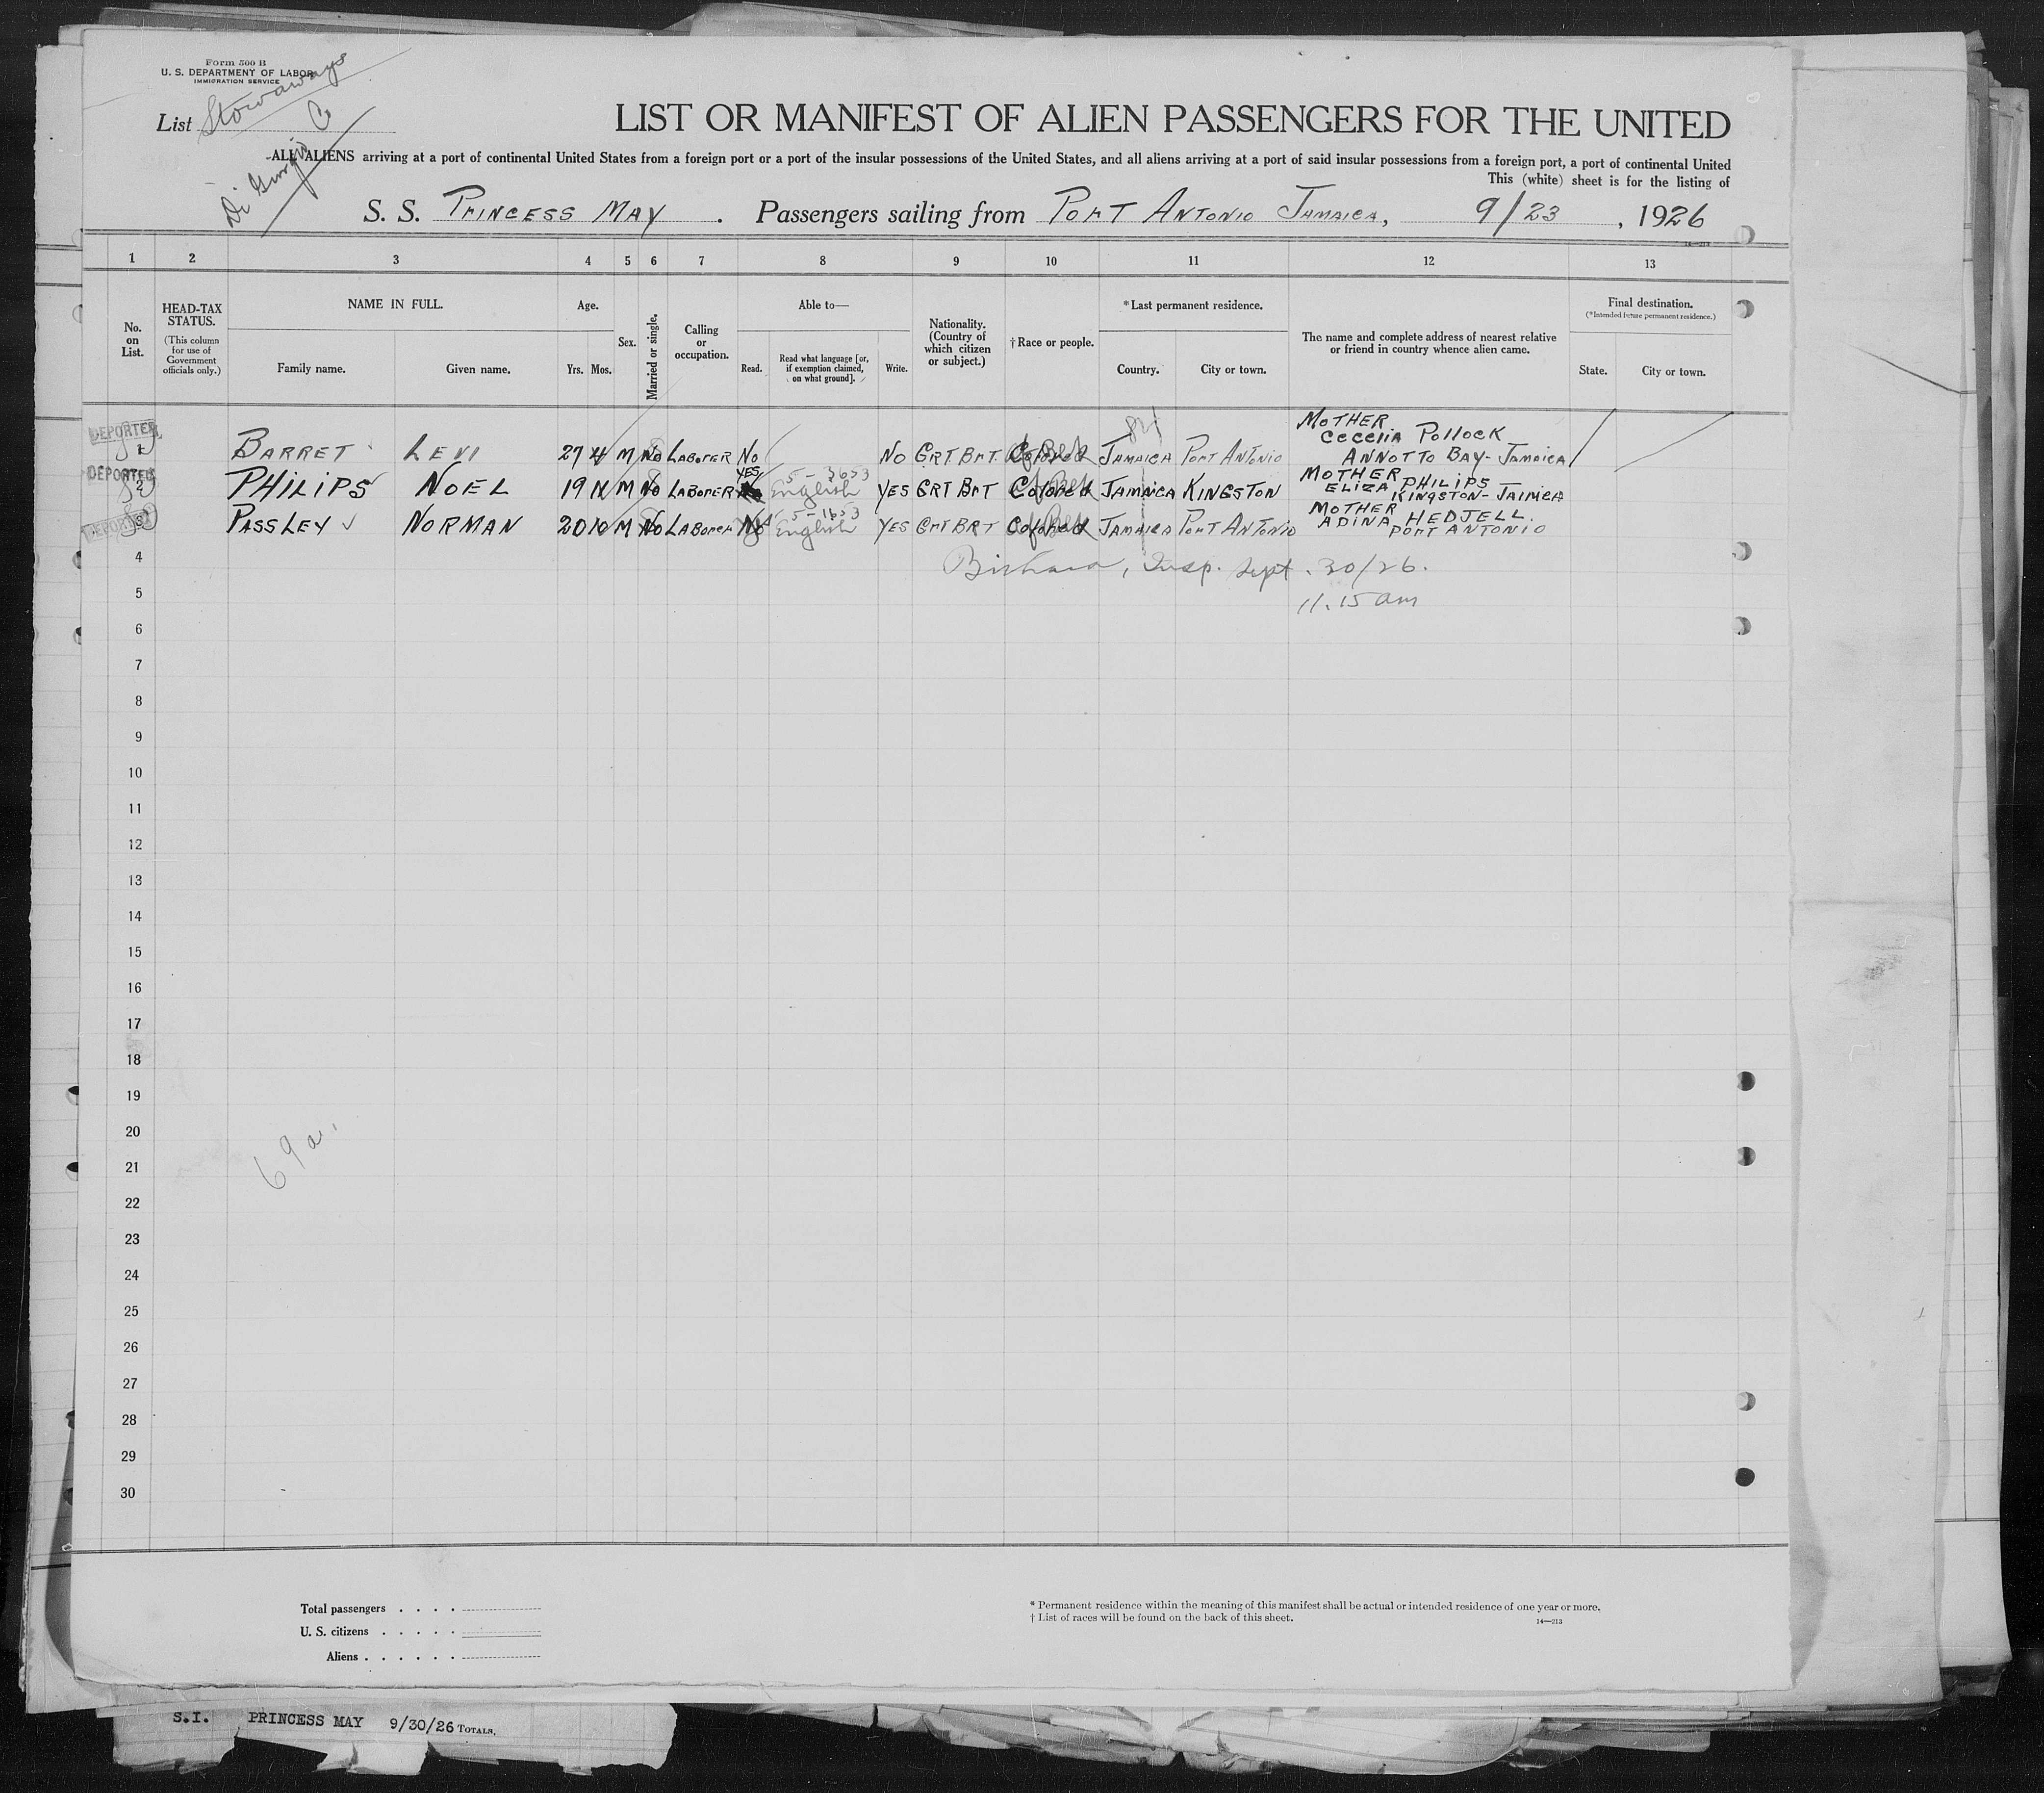 Form 500 B
U. S. DEPARTMENT OF LABOR
IMMIGRATION SERVICE
List Stowaways
Di Giorgio
LIST OR MANIFEST OF ALIEN PASSENGERS FOR THE UNITED
ALL ALIENS arriving at a port of continental United States from a foreign port or a port of the insular possessions of the United States, and all aliens arriving at a port of said insular possessions from a foreign port, a port of continental United
This (white) sheet is for the listing of
S. S. PRINCESS MAY . Passengers sailing from PORT ANTONIO JAMAICA, 9/23, 1926
14—213
1 2 3 4 5 6 7 8 9 10 11 12 13
No. on List.
HEAD-TAX STATUS.
(This column for use of Government officials only.)
NAME IN FULL.
Family name. Given name.
Age.
Yrs. Mos.
Sex.
Married or single.
Calling or occupation.
Able to—
Read. Read what language [or, if exemption claimed, on what ground]. Write.
Nationality. (Country of which citizen or subject.)
† Race or people.
* Last permanent residence.
Country. City or town.
The name and complete address of nearest relative or friend in country whence alien came.
Final destination.
(*Intended future permanent residence.)
State. City or town.
MOTHER
CECELIA POLLOCK
DEPORTED 1 BARRET LEVI 27 4 M No LABORER No No GRT BRT Colored JAMAICA PORT ANTONIO ANNOTTO BAY - JAMAICA
MOTHER
ELIZA PHILIPS
DEPORTED 2 PHILIPS NOEL 19 11 M No LABORER YES 5-3633 English YES GRT BRT Colored JAMAICA KINGSTON KINGSTON - JAIMICA
MOTHER
ADINA HEDJELL
DEPORTED 3 PASSLEY NORMAN 20 10 M No LABORER No 5-1633 English YES GRT BRT Colored JAMAICA PORT ANTONIO PORT ANTONIO
4 Insp. Sept. 30/26.
5 11.15 am
6
7
8
9
10
11
12
13
14
15
16
17
18
19
20
69 a.
21
22
23
24
25
26
27
28
29
30
Total passengers . . . .
U. S. citizens . . . . .
Aliens . . . . . .
* Permanent residence within the meaning of this manifest shall be actual or intended residence of one year or more.
† List of races will be found on the back of this sheet.
14—213
S.I. PRINCESS MAY 9/30/26 TOTALS.